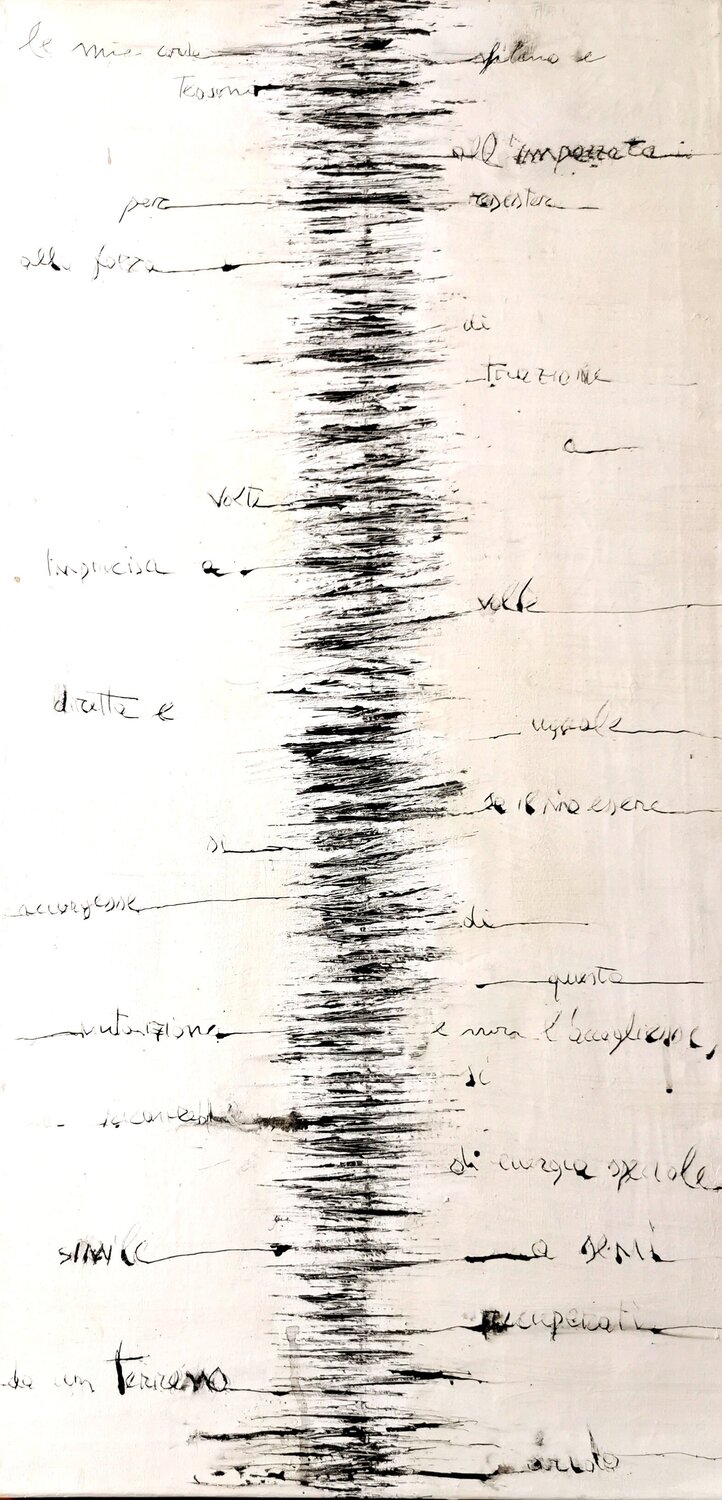 le mie corde
sfilano e
tesoni
all'impazzata
per
resistere
alla forza
di
trazione
a
volte
imprecisa a
volte
diretta e
uguale
se il mio essere
si
accorgesse
di
questa
mutazione
e non l'accogliesse,
si
di energia speciale
simile
a semi
recuperati
da un terreno
arido